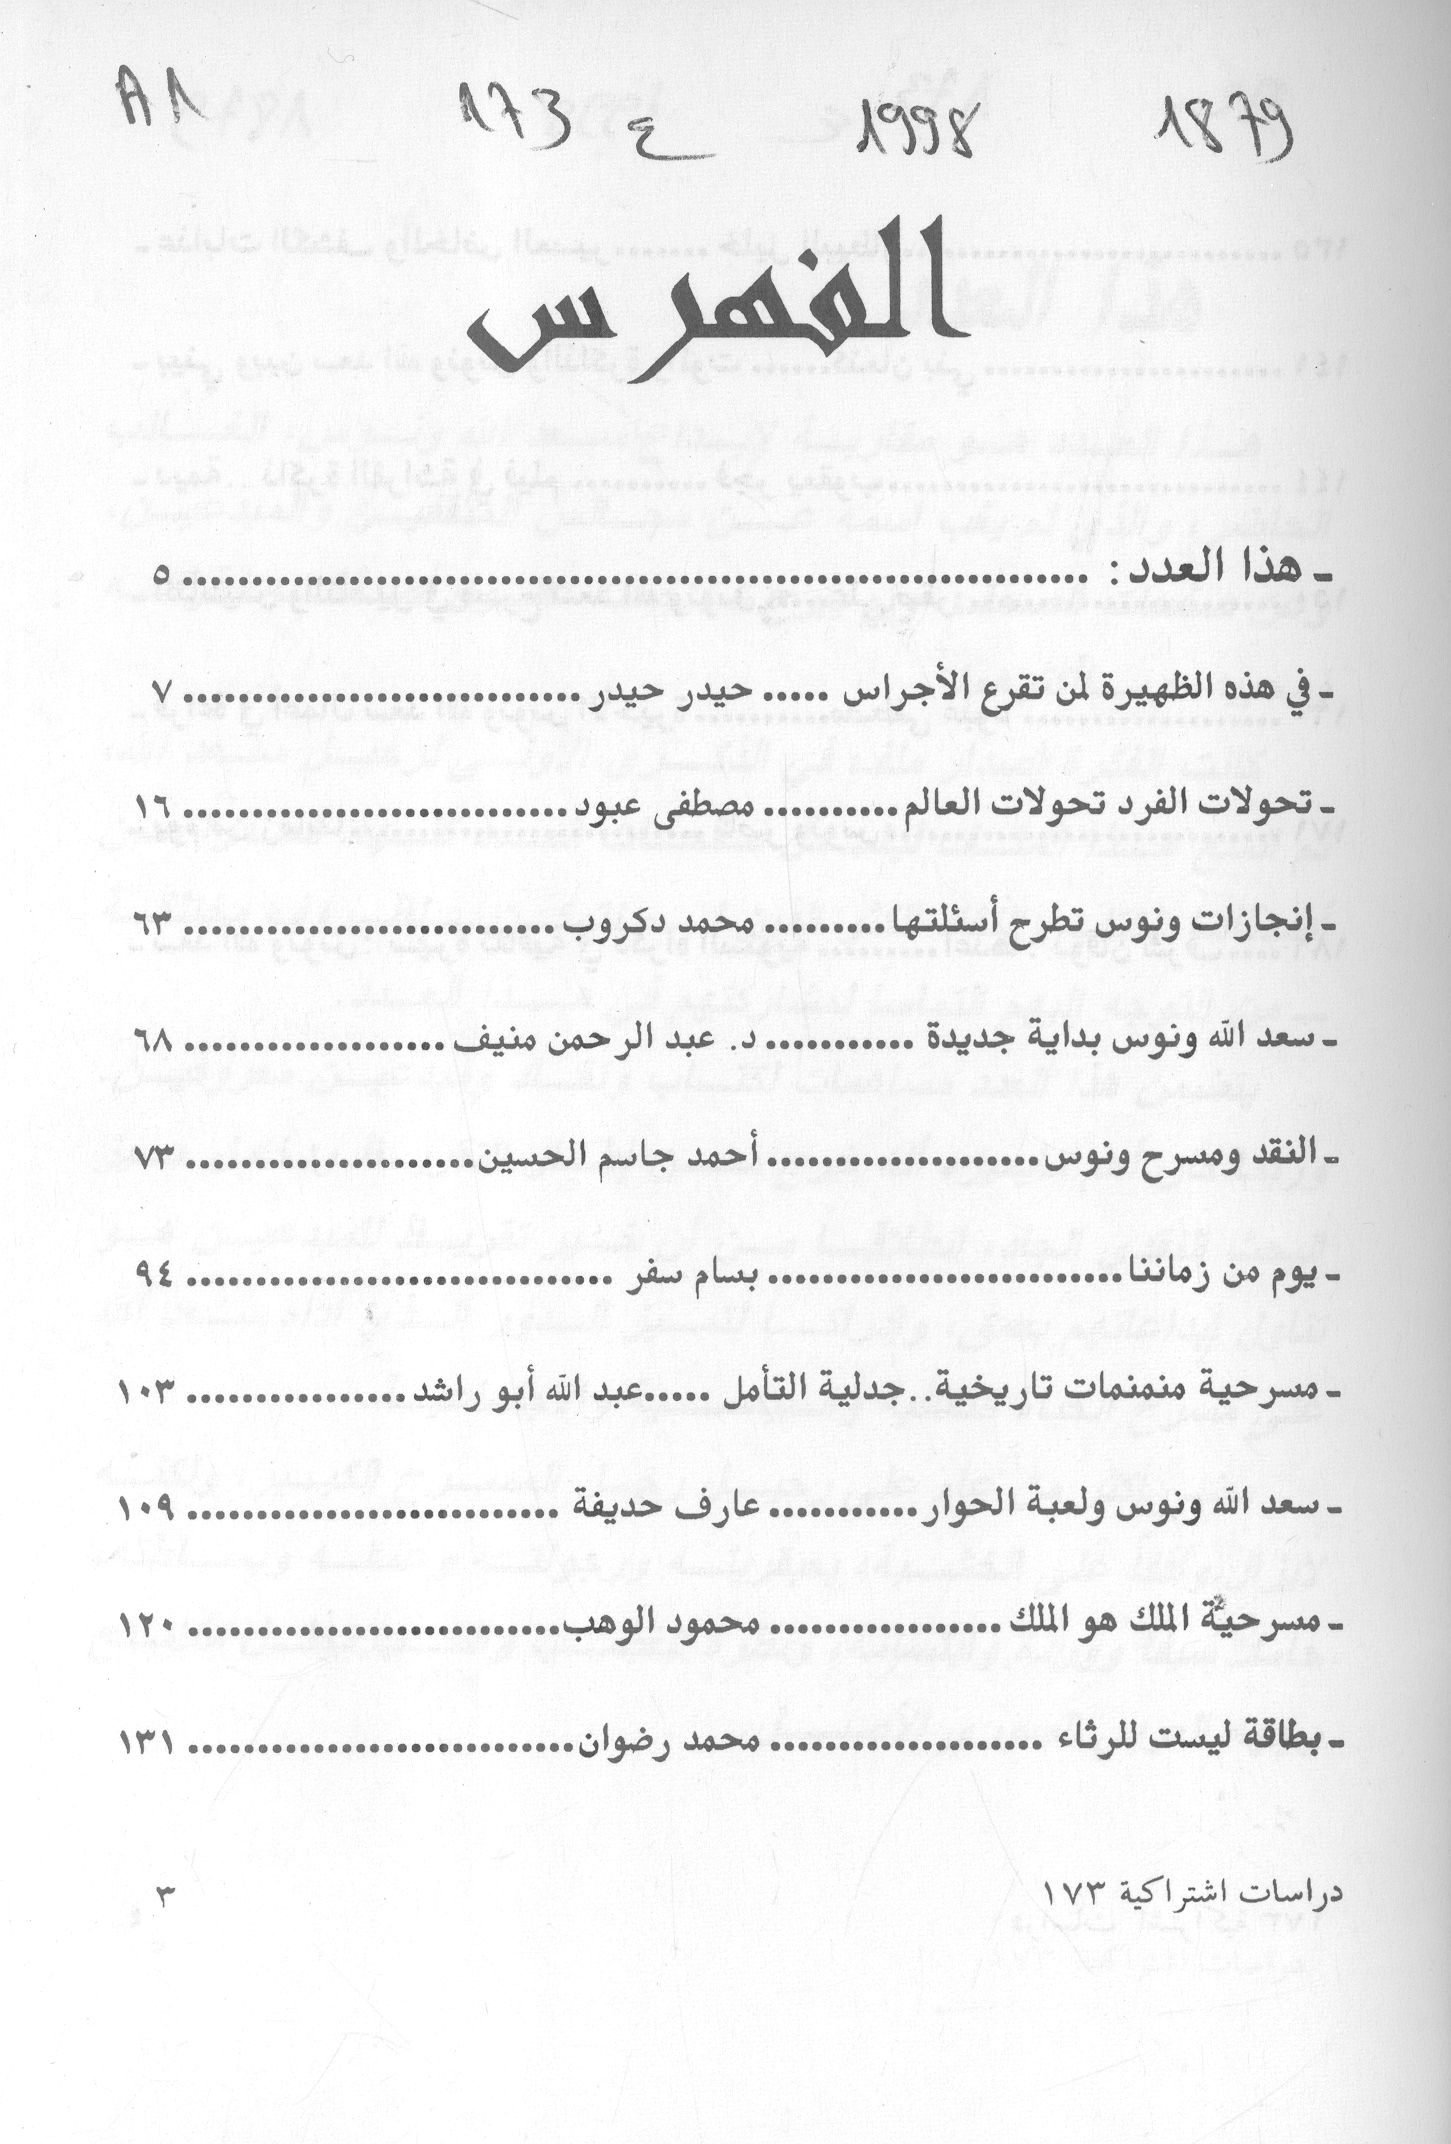 A1 173 ع 1998 1879
الفهرس
ـ هذا العدد : .................................................................. ٥
ـ في هذه الظهيرة لمن تقرع الأجراس ..... حيدر حيدر ............................. ٧
ـ تحولات الفرد تحولات العالم.......... مصطفى عبود............................ ١٦
ـ إنجازات ونوس تطرح أسئلتها......... محمد دكروب........................... ٦٣
ـ سعد الله ونوس بداية جديدة ........... د. عبد الرحمن منيف ................... ٦٨
ـ النقد ومسرح ونوس.................... أحمد جاسم الحسين..................... ٧٣
ـ يوم من زماننا.......................... بسام سفر ............................... ٩٤
ـ مسرحية منمنمات تاريخية..جدلية التأمل .....عبد الله أبو راشد................ ١٠٣
ـ سعد الله ونوس ولعبة الحوار........... عارف حديفة ........................... ١٠٩
ـ مسرحية الملك هو الملك................. محمود الوهب........................... ١٢٠
ـ بطاقة ليست للرثاء .................... محمد رضوان............................ ١٣١
دراسات اشتراكية ١٧٣ ٣